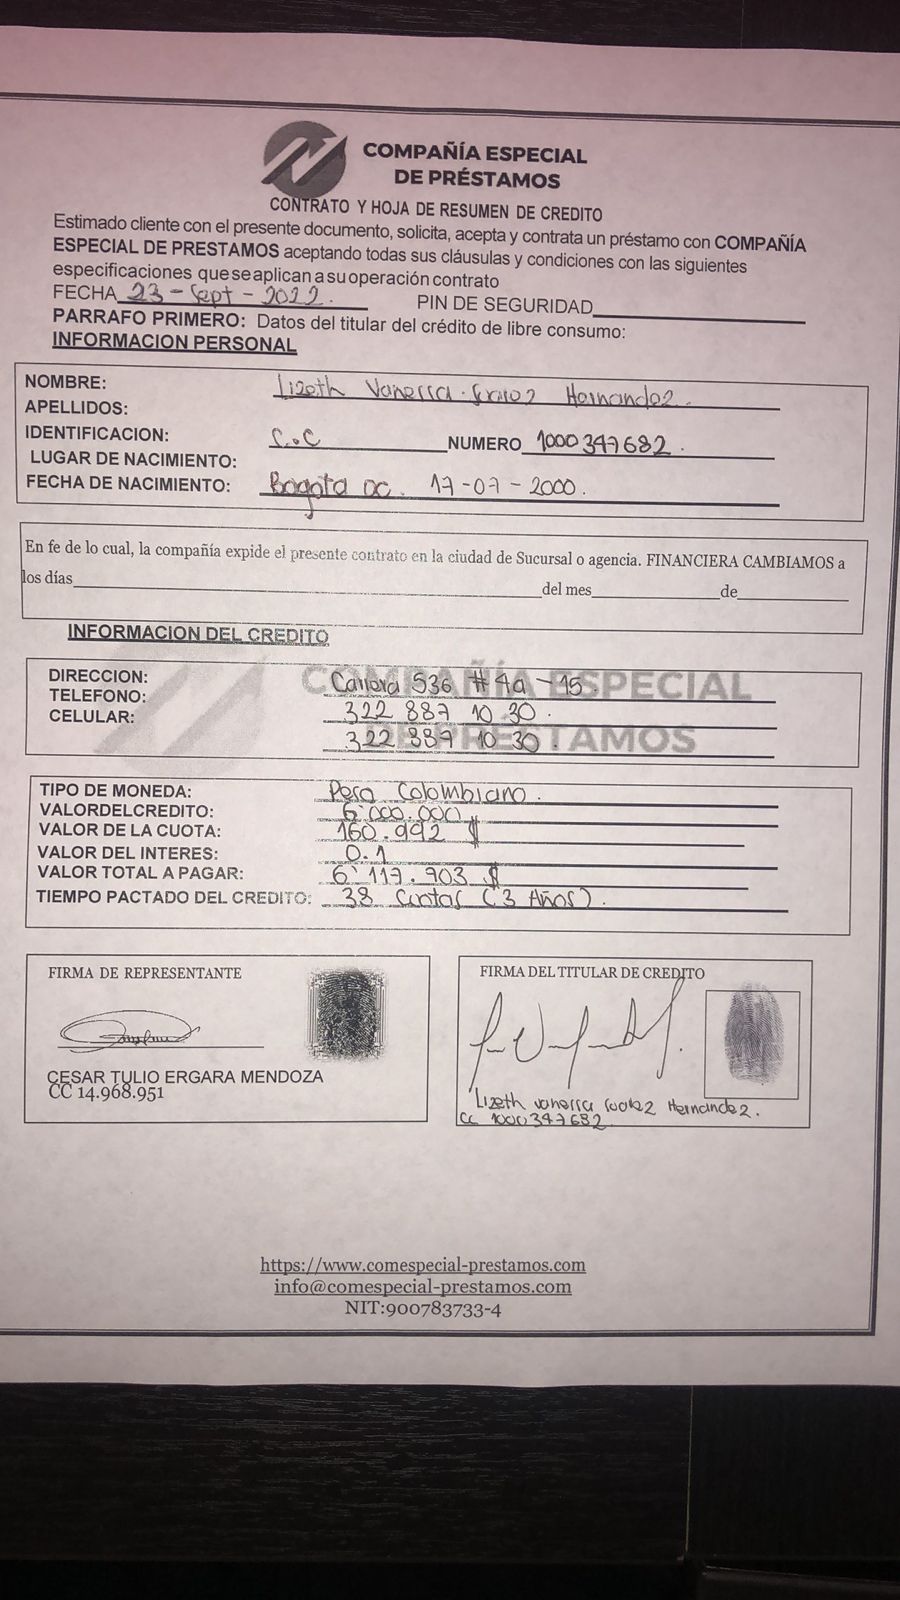 COMPAÑÍA ESPECIAL
DE PRÉSTAMOS
CONTRATO Y HOJA DE RESUMEN DE CREDITO
Estimado cliente con el presente documento, solicita, acepta y contrata un préstamo con COMPAÑÍA
ESPECIAL DE PRESTAMOS aceptando todas sus cláusulas y condiciones con las siguientes
especificaciones que se aplican a su operación contrato
FECHA 23 - Sept - 2022. PIN DE SEGURIDAD
PARRAFO PRIMERO: Datos del titular del crédito de libre consumo:
INFORMACION PERSONAL
NOMBRE: Lizeth Vanessa Hernandez.
APELLIDOS:
IDENTIFICACION: C.C NUMERO 1000347682.
LUGAR DE NACIMIENTO:
FECHA DE NACIMIENTO: Bogota DC. 17-07-2000.
En fe de lo cual, la compañía expide el presente contrato en la ciudad de Sucursal o agencia. FINANCIERA CAMBIAMOS a
los días del mes de
INFORMACION DEL CREDITO
COMPAÑÍA ESPECIAL
DE PRESTAMOS
DIRECCION: Carrera 536 #4a - 15.
TELEFONO: 322 887 10 30.
CELULAR: 322 887 10 30.
TIPO DE MONEDA: Peso Colombiano.
VALORDELCREDITO: 6'000.000
VALOR DE LA CUOTA: 160.992 $
VALOR DEL INTERES: 0.1
VALOR TOTAL A PAGAR: 6'117.903 $
TIEMPO PACTADO DEL CREDITO: 38 Cuotas (3 Años).
FIRMA DE REPRESENTANTE
CESAR TULIO ERGARA MENDOZA
CC 14.968.951
FIRMA DEL TITULAR DE CREDITO
Lizeth vanessa Hernandez.
CC 1000347682
https://www.comespecial-prestamos.com
info@comespecial-prestamos.com
NIT:900783733-4